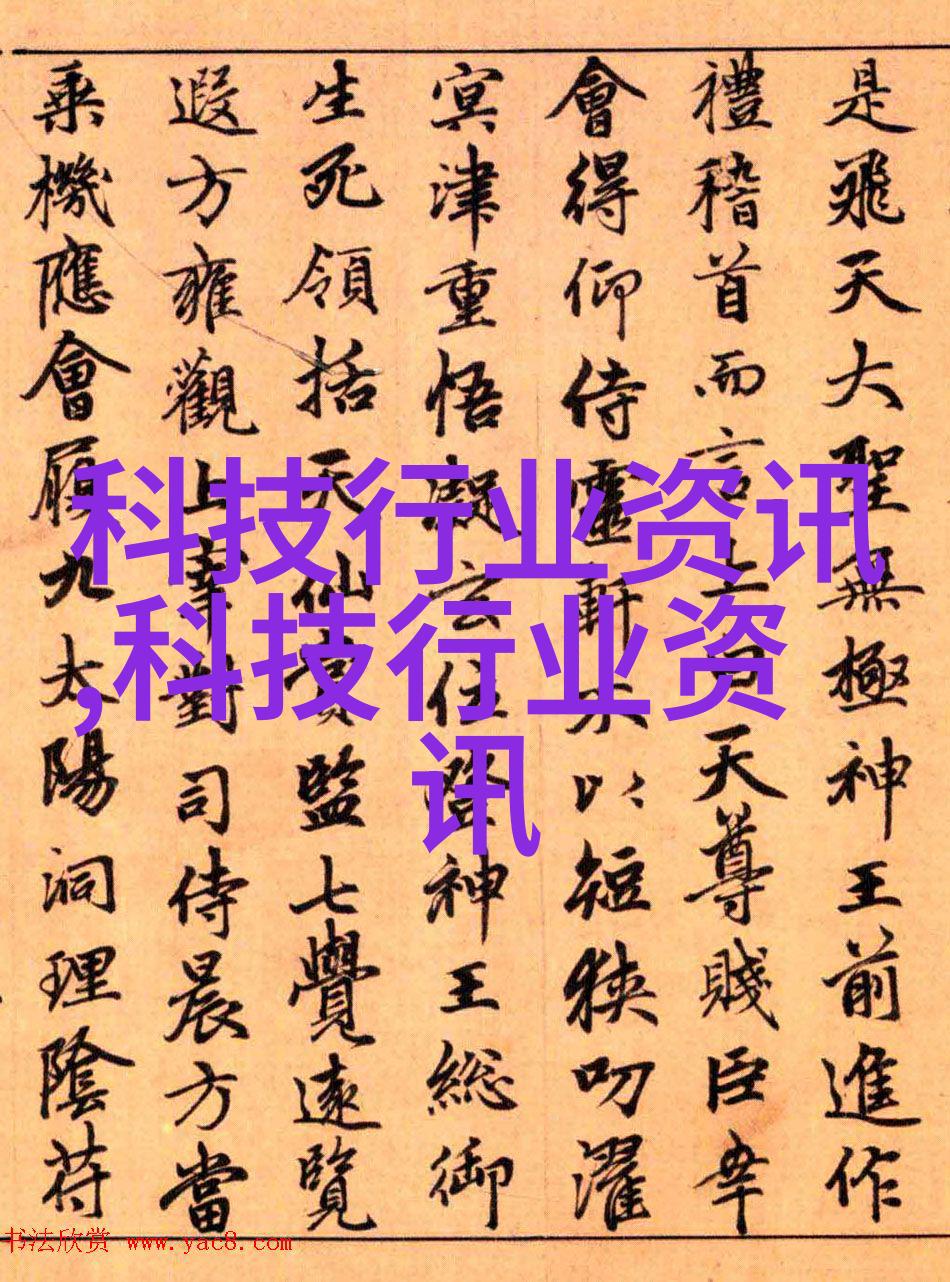 是飛天大聖無極神王前進作
禮稽首而言上天尊賤臣幸
會得仰侍靈軒不以短狹叨濯
冥津重悟凝玄神王総御
生死領括天仙監七覺遠覽
遐方雍觀上宰對司侍晨方當
乗機應會履九太陽洞理陰苻
科技行业资讯
,科技行业资
讯
书法欣赏 www.yac8.com